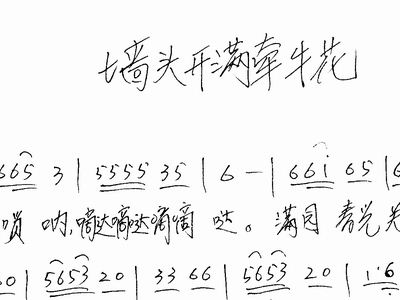 墙头开满牵牛花
665 3 | 5555 35 | 6 - | 66i 65 | 6
唢 呐,嘀达嘀达嘀嘀 哒。满目 春光
0 | 5653 20 | 33 66 | 5653 20 | i·6